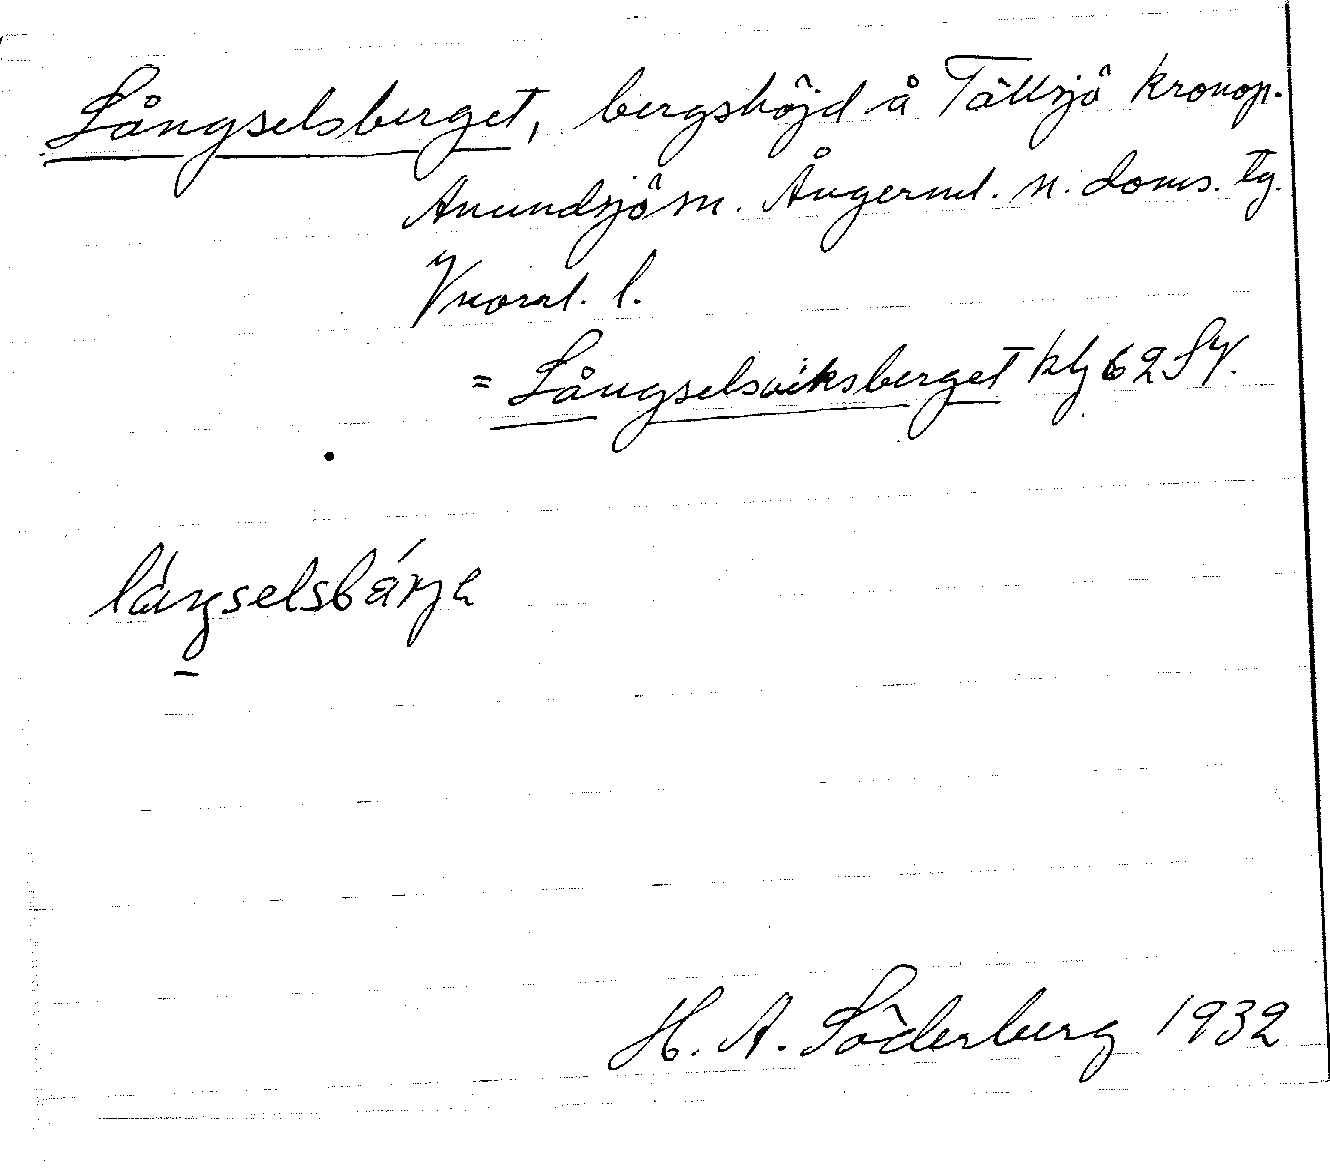 Långselsberget, bergshöjd å Tällsjö kronop.
Anundsjö sn. Ångerml. n. doms. tg.
Vnorrl. l.
= Långselsviksberget kbl 62 SV.
låŋselsbárja
H. A. Söderberg 1932